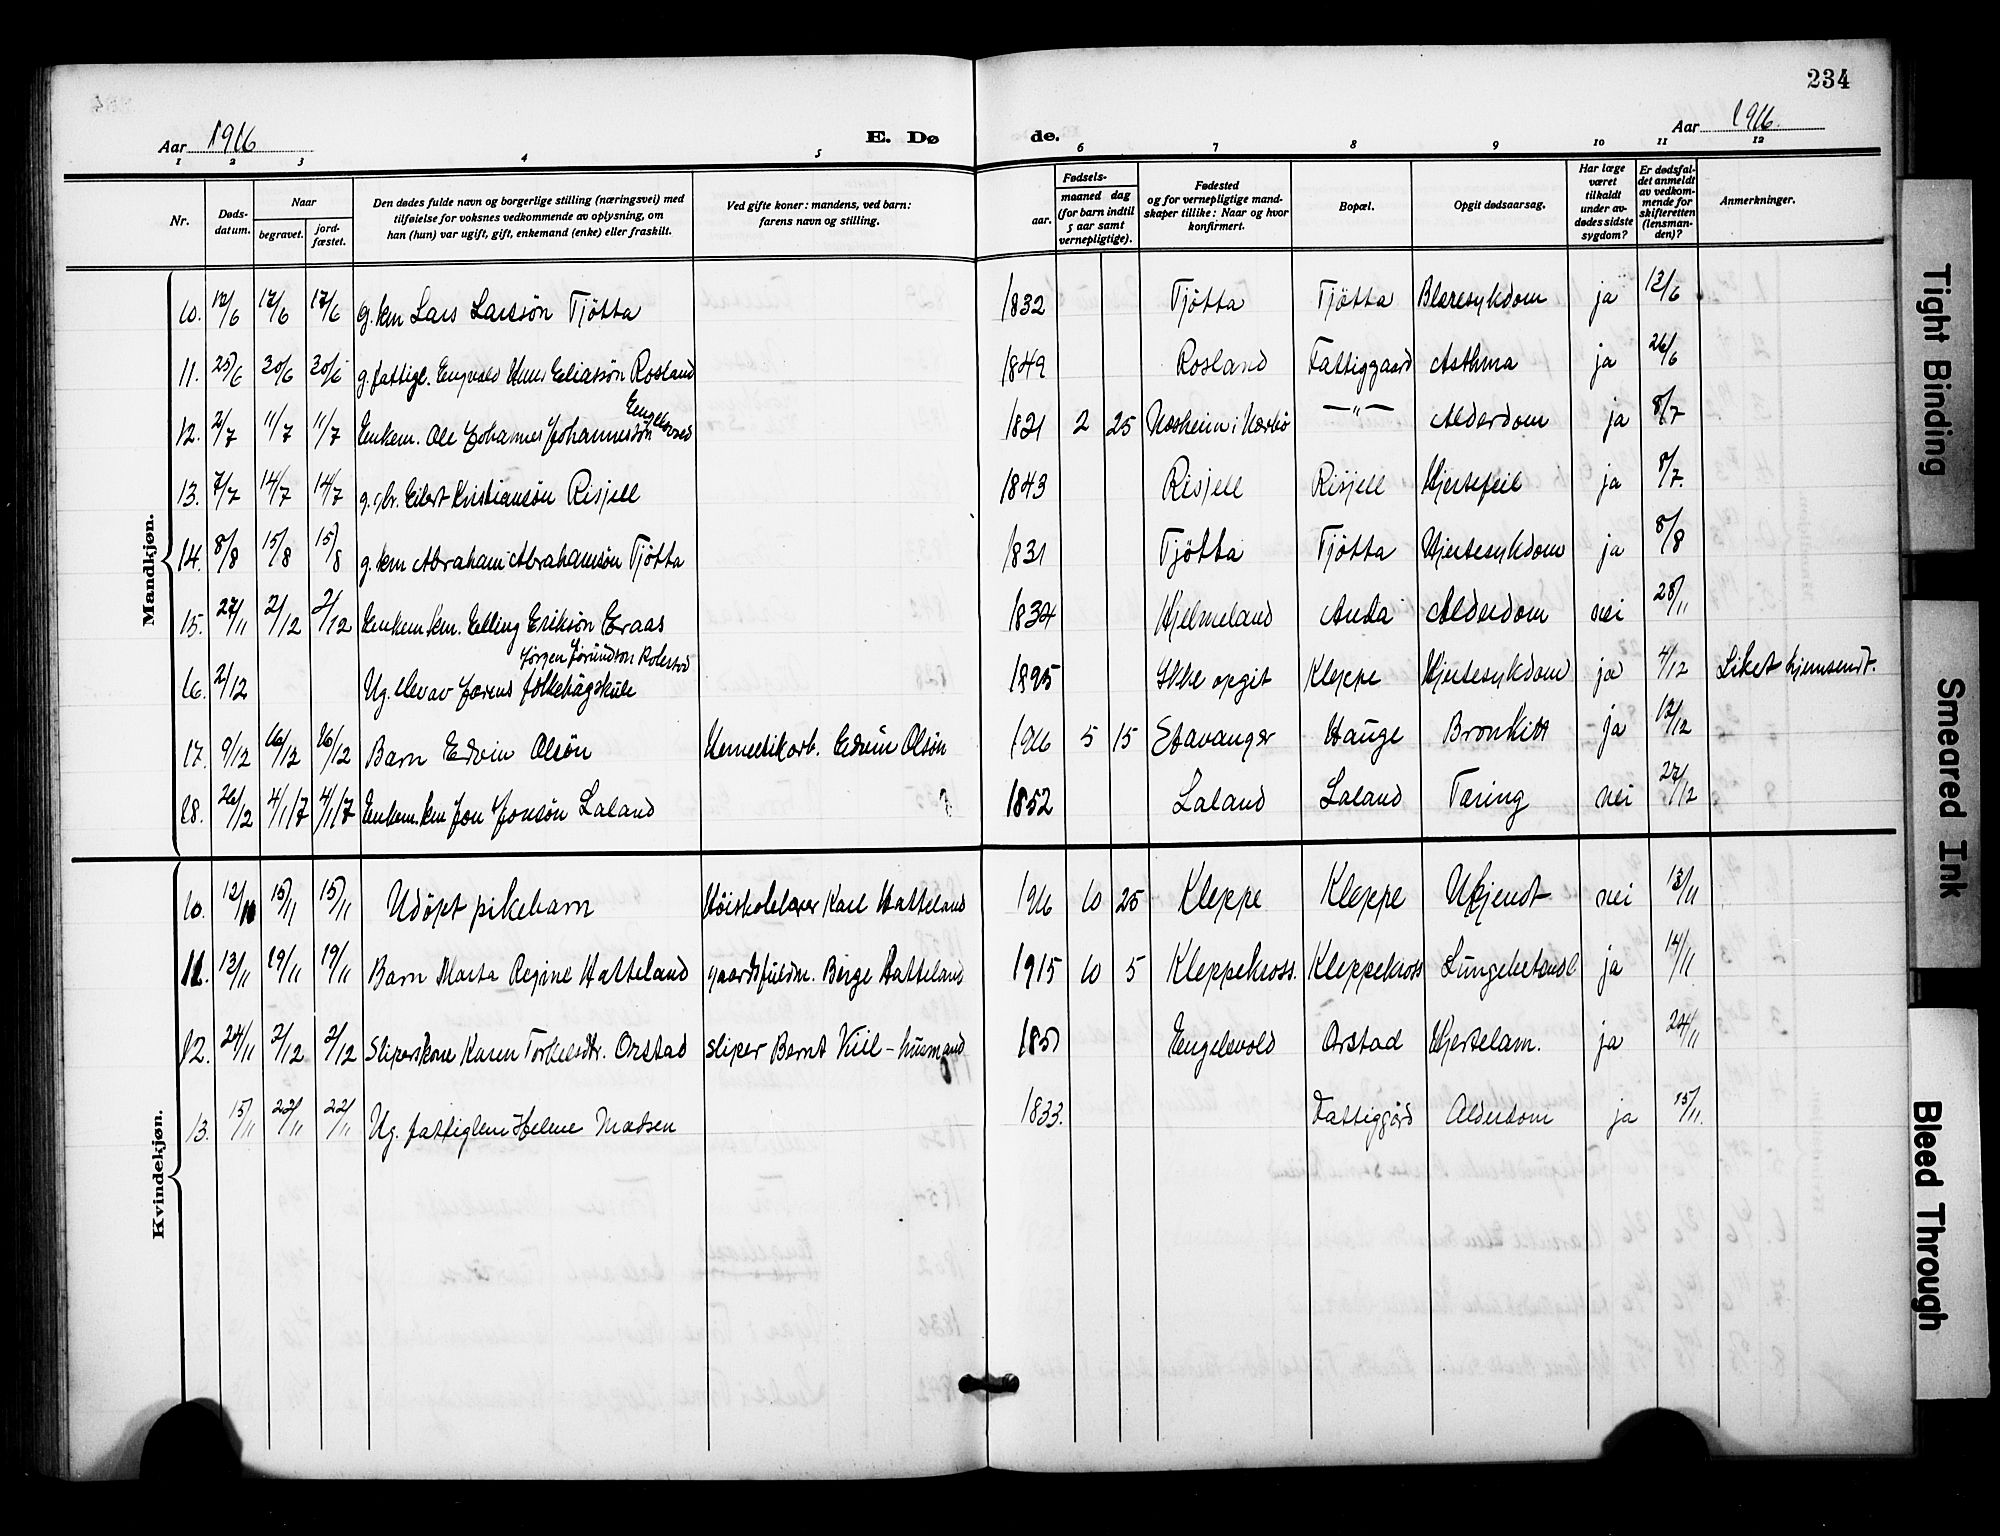 234
Aar 1916 E. Døde. Aar 1916.
1 2 3 4 5 6 7 8 9 10 11 12
Nr. Dødsdatum. Naar begravet. jordfæstet. Den dødes fulde navn og borgerlige stilling (næringsvei) med tilføielse for voksnes vedkommende av oplysning, om han (hun) var ugift, gift, enkemand (enke) eller fraskilt. Ved gifte koner: mandens, ved barn: farens navn og stilling. Fødsels- aar. maaned dag (for barn indtil 5 aar samt vernepligtige). Fødested og for vernepligtige mandskaper tillike: Naar og hvor konfirmert. Bopæl. Opgit dødsaarsag. Har læge været tilkaldt under avdødes sidste sygdom? Er dødsfaldet anmeldt av vedkommende for skifteretten (lensmanden)? Anmerkninger.
Mandkjøn.
10. 12/6 17/6 17/6 g. km Lars Larssøn Tjøtta 1832 Tjøtta Tjøtta Blæresykdom ja 13/6
11. 25/6 30/6 30/6 g. fattigl. Engvald Eliassøn Rosland 1849 Rosland Fattiggaard Asthma ja 26/6
Engelsvold
12. 2/7 11/7 11/7 Enkem. Ole Johannes Johannessøn 1821 2 25 —"— Alderdom ja 8/7
13. 7/7 14/7 14/7 g. gbr. Eilert Kristiansøn Risjell 1843 Risjell Risjell Hjertefeil ja 8/7.
14. 8/8 15/8 15/8 g. km Abraham Abrahamsøn Tjøtta 1831 Tjøtta Tjøtta Hjertesykdom ja 8/8
15. 27/11 2/12 2/12 Enkem. km. Elling Eriksøn Eraas 1834 Hjelmeland Anda Alderdom nei 28/11
Jørgen Jørundson
16. 2/12 Ug. elev av Jærens folkehøgskule 1895 Ikke opgit Kleppe Hjertesykdom ja 4/12 Liket hjemsendt.
17. 9/12 16/12 16/12 Barn Edvin Olsøn Hermetikarb. Edvin Olsøn 1916 5 15 Stavanger Hauge Bronkitt ja 12/12
18. 26/12 4/1 17 4/1 17 Enkem. km Jon Jonsøn Laland 1852 Laland Laland Tæring nei 27/12
Kvindekjøn.
10. 12/11 15/11 15/11 Udøpt pikebarn Høiskolelærer Karl Hatteland 1916 10 25 Kleppe Kleppe Ukjendt nei 13/11
11. 13/11 19/11 19/11 Barn Marta Regine Hatteland gaardsfuldm. Børge Hatteland 1915 10 5 Kleppekross. Kleppekross Lungebetændl ja 14/11
12. 24/11 2/12 2/12 Sliperskone Karen Torkelsdtr. Orstad sliper Bernt Kiil - husmand 1851 Engelsvold Orstad Hjertelam. ja 24/11
13. 15/11 22/11 22/11 Ug. fattiglem Helene Madsen 1833. Fattiggård Alderdom ja 15/11.
Tight Binding
Smeared Ink
Bleed Through